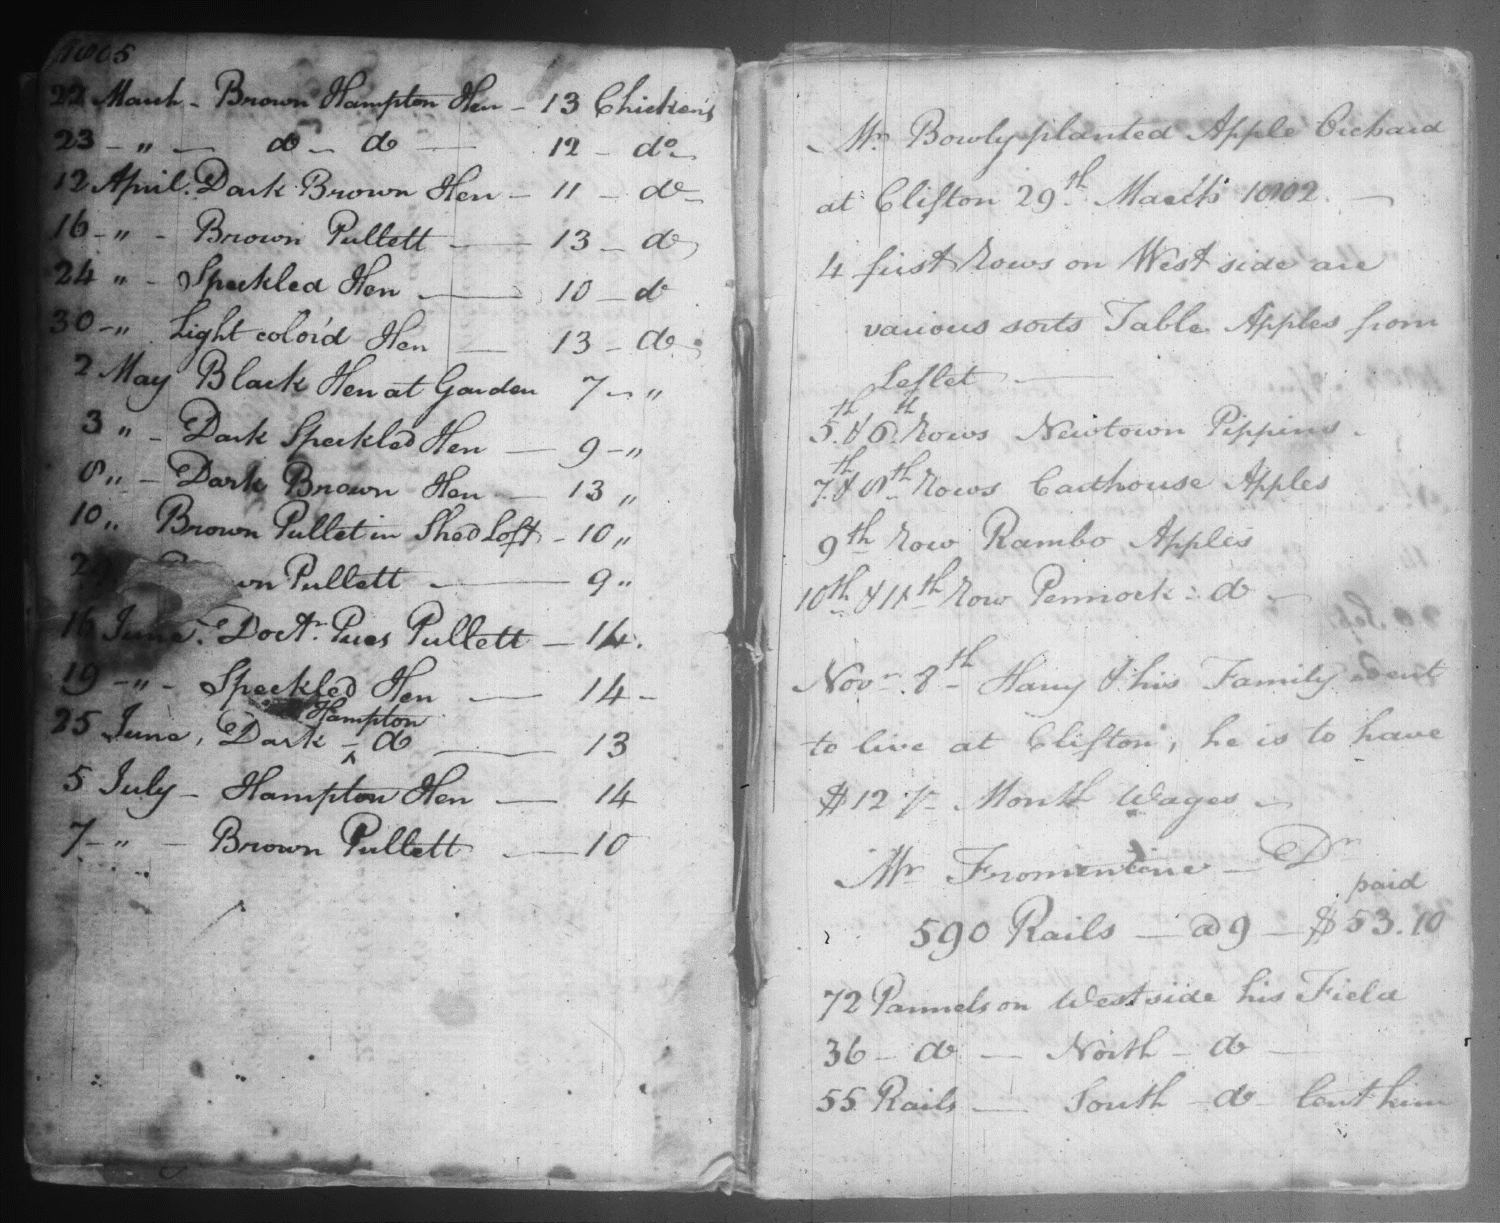 1805
22 March - Brown Hampton Hen - 13 Chickens
23 - " - do - do - 12 - do -
12 April. Dark Brown Hen - 11 - do -
16 - " - Brown Pullett - 13 - do
24 " - Speckled Hen - 10 - do
30 - " Light colord Hen - 13 - do
2 May Black Hen at Garden 7 - "
3 " - Dark Speckled Hen - 9 - "
8 " - Dark Brown Hen - 13 "
10 " Brown Pullet in Shed Loft - 10 "
wn Pullett - 9 "
16 June. Doctr. Pues Pullett - 14.
19 - " - Speckled Hen - 14 -
25 June, Dark - Hampton do - 13
5 July - Hampton Hen - 14
7 - " - Brown Pullett - 10
Mr. Bowly planted Apple Orchard
at Clifton 29th March 1802. -
4 first Rows on West side are
various sorts Table Apples from
Leflet -
5th & 6th Rows Newtown Pippins -
7th & 8th Rows Carthouse Apples
9th Row Rambo Apples
10th & 11th Row Pennock - do -
Novr. 8th Harry & his Family went
to live at Clifton, he is to have
$12 Month Wages -
Mr Fromentine - Dr
paid
590 Rails - @ 9 - $53.10
72 Pannels on West side his Field
36 - do - North - do -
55 Rails - South - do - lent him